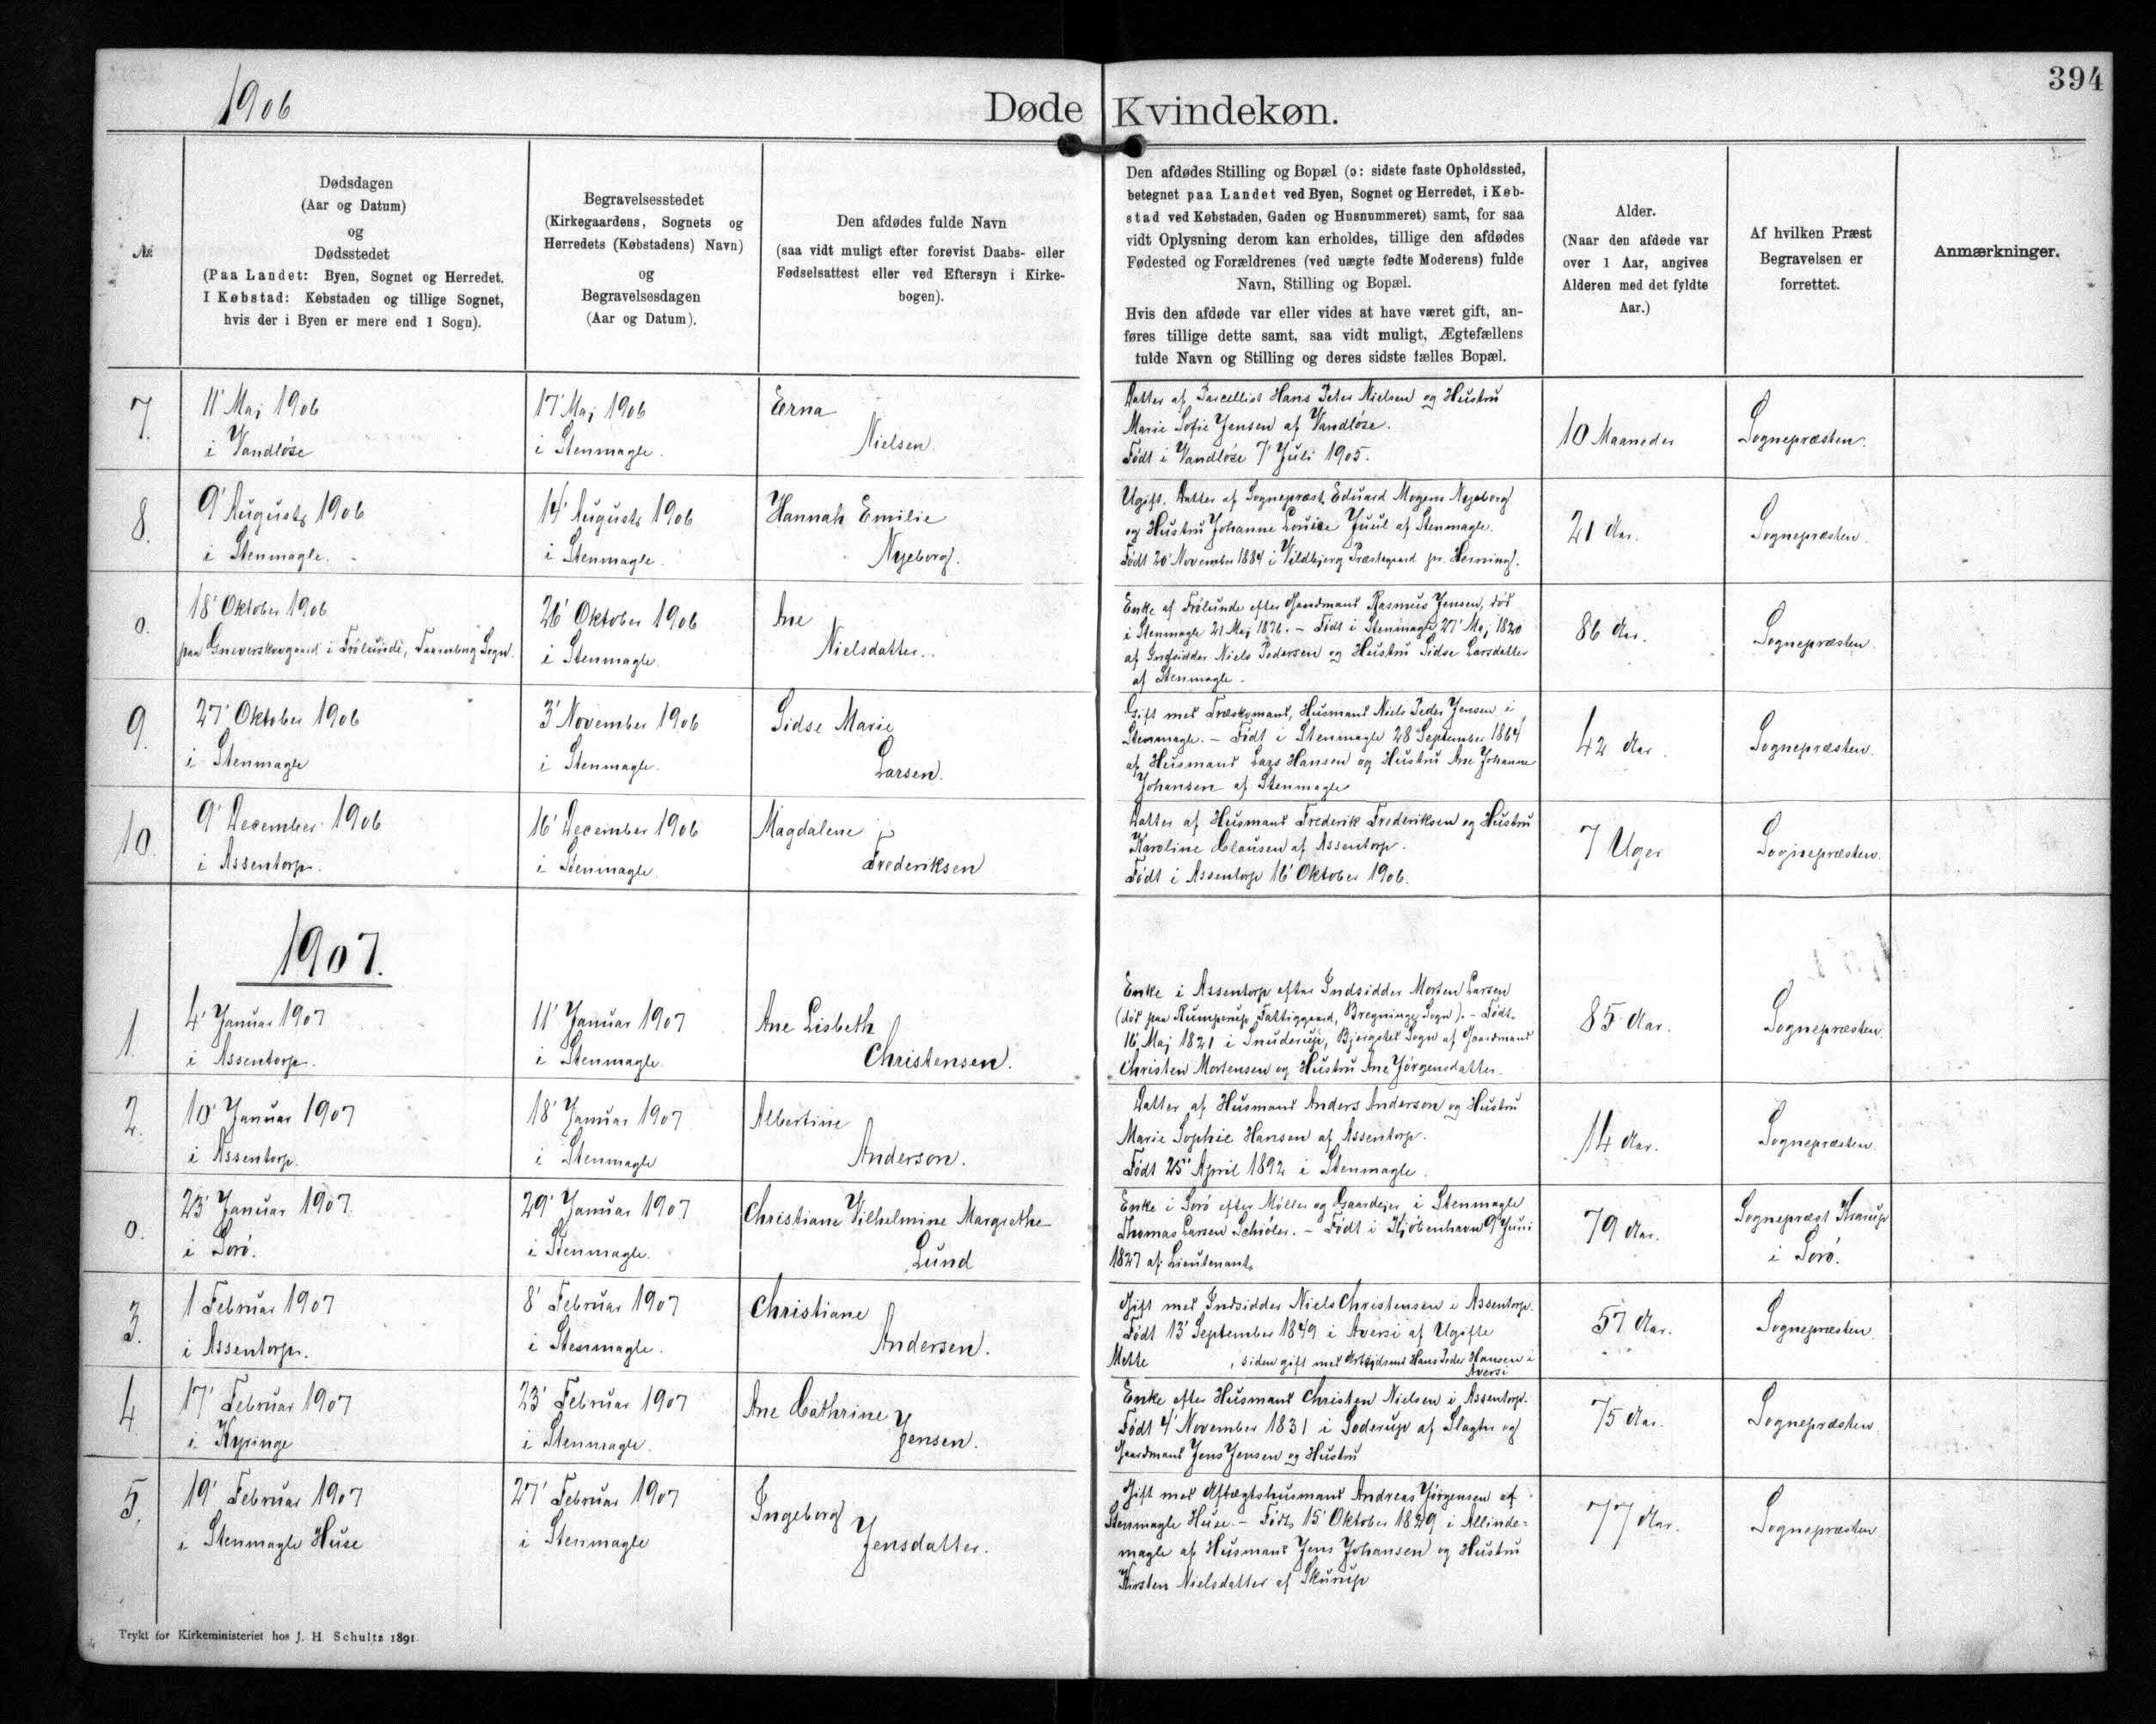 394
1906
Døde Kvindekøn.
№
Dødsdagen
(Aar og Datum)
og
Dødsstedet
(Paa Landet: Byen, Sognet og Herredet.
I Købstad: Købstaden og tillige Sognet,
hvis der i Byen er mere end 1 Sogn).
Begravelsesstedet
(Kirkegaardens, Sognets og
Herredets (Købstadens) Navn)
og
Begravelsesdagen
(Aar og Datum).
Den afdødes fulde Navn
(saa vidt muligt efter forevist Daabs- eller
Fødselsattest eller ved Eftersyn i Kirke-
bogen).
Den afdødes Stilling og Bopæl (ɔ: sidste faste Opholdssted,
betegnet paa Landet ved Byen, Sognet og Herredet, i Køb-
stad ved Købstaden, Gaden og Husnummeret) samt, for saa
vidt Oplysning derom kan erholdes, tillige den afdødes
Fødested og Forældrenes (ved uægte fødte Moderens) fulde
Navn, Stilling og Bopæl.
Hvis den afdøde var eller vides at have været gift, an-
føres tillige dette samt, saa vidt muligt, Ægtefællens
fulde Navn og Stilling og deres sidste fælles Bopæl.
Alder.
(Naar den afdøde var
over 1 Aar, angives
Alderen med det fyldte
Aar.)
Af hvilken Præst
Begravelsen er
forrettet.
Anmærkninger.
7.
11' Maj 1906
i Vandløse
17' Maj 1906
i Stenmagle.
Erna
Nielsen.
Datter af Parcellist Hans Peter Nielsen og Hustru
Marie Sofie Jensen af Vandløse.
Født i Vandløse 7' Juli 1905.
10 Maaneder
Sognepræsten.
8.
9' August 1906
i Stenmagle.
14' August 1906
i Stenmagle.
Hannah Emilie
Nyeborg.
Ugift. Datter af Sognepræst Eduard Mogens Nyeborg
og Hustru Johanne Louise Juul af Stenmagle.
Født 20' November 1884 i Vildbjerg Præstegaard pr. Herning.
21 Aar.
Sognepræsten.
0.
18' Oktober 1906
paa Gneverskovgaard i Frølunde, Taarnborg Sogn.
26' Oktober 1906
i Stenmagle.
Ane
Nielsdatter.
Enke af Frølunde efter Gaardmand Rasmus Jensen, død
i Stenmagle 21 Maj 1876. – Født i Stenmagle 27' Maj 1820
af Indsidder Niels Pedersen og Hustru Sidse Larsdatter
af Stenmagle.
86 Aar.
Sognepræsten.
9.
27' Oktober 1906
i Stenmagle
3' November 1906
i Stenmagle.
Sidse Marie
Larsen.
Gift med Træskomand, Husmand Niels Peder Jensen i
Stenmagle. – Født i Stenmagle 28' September 1864
af Husmand Lars Hansen og Hustru Ane Johanne
Johansen af Stenmagle
42 Aar.
Sognepræsten.
10.
9' December 1906
i Assentorp.
16' December 1906
i Stenmagle.
Magdalene
Frederiksen
Datter af Husmand Frederik Frederiksen og Hustru
Karoline Clausen af Assentorp.
Født i Assentorp 16' Oktober 1906.
7 Uger
Sognepræsten.
1907.
1.
4' Januar 1907
i Assentorp.
11' Januar 1907
i Stenmagle.
Ane Lisbeth
Christensen.
Enke i Assentorp efter Indsidder Morten Larsen
(død paa Kumprup Fattiggaard, Bregninge Sogn). – Født
16' Maj 1821 i Snuderup, Bjergsted Sogn af Gaardmand
Christen Mortensen og Hustru Ane Jørgensdatter.
85 Aar.
Sognepræsten.
2.
10' Januar 1907
i Assentorp.
18' Januar 1907
i Stenmagle
Albertine
Anderson.
Datter af Husmand Anders Anderson og Hustru
Marie Sophie Hansen af Assentorp.
Født 25' April 1892 i Stenmagle.
14 Aar.
Sognepræsten.
0.
23' Januar 1907.
i Sorø.
29' Januar 1907
i Stenmagle.
Christiane Vilhelmine Margrethe
Lund
Enke i Sorø efter Møller og Gaardejer i Stenmagle
Thomas Larsen Schiøler. – Født i Kjøbenhavn 9' Juni
1827 af Lieutenant
79 Aar.
Sognepræst Krarup
i Sorø.
3.
1 Februar 1907
i Assentorp.
8' Februar 1907
i Stenmagle.
Christiane
Andersen.
Gift med Indsidder Niels Christensen i Assentorp.
Født 13' September 1849 i Aversi af Ugifte
Mette , siden gift med Arbejdsmd Hans Peder Hansen i
Aversi
57 Aar.
Sognepræsten.
4
17' Februar 1907
i Kyringe
23' Februar 1907
i Stenmagle.
Ane Cathrine
Jensen.
Enke efter Husmand Christen Nielsen i Assentorp.
Født 4' November 1831 i Soderup af Slagter og
Gaardmand Jens Jensen og Hustru
75 Aar.
Sognepræsten
5.
19' Februar 1907
i Stenmagle Huse
27' Februar 1907
i Stenmagle
Ingeborg
Jensdatter.
Gift med Aftægtshusmand Andreas Jørgensen af
Stenmagle Huse. – Født 15' Oktober 1829 i Allinde-
magle af Husmand Jens Johansen og Hustru
Kirsten Nielsdatter af Skurup
77 Aar.
Sognepræsten
Trykt for Kirkeministeriet hos J. H. Schultz 1891.